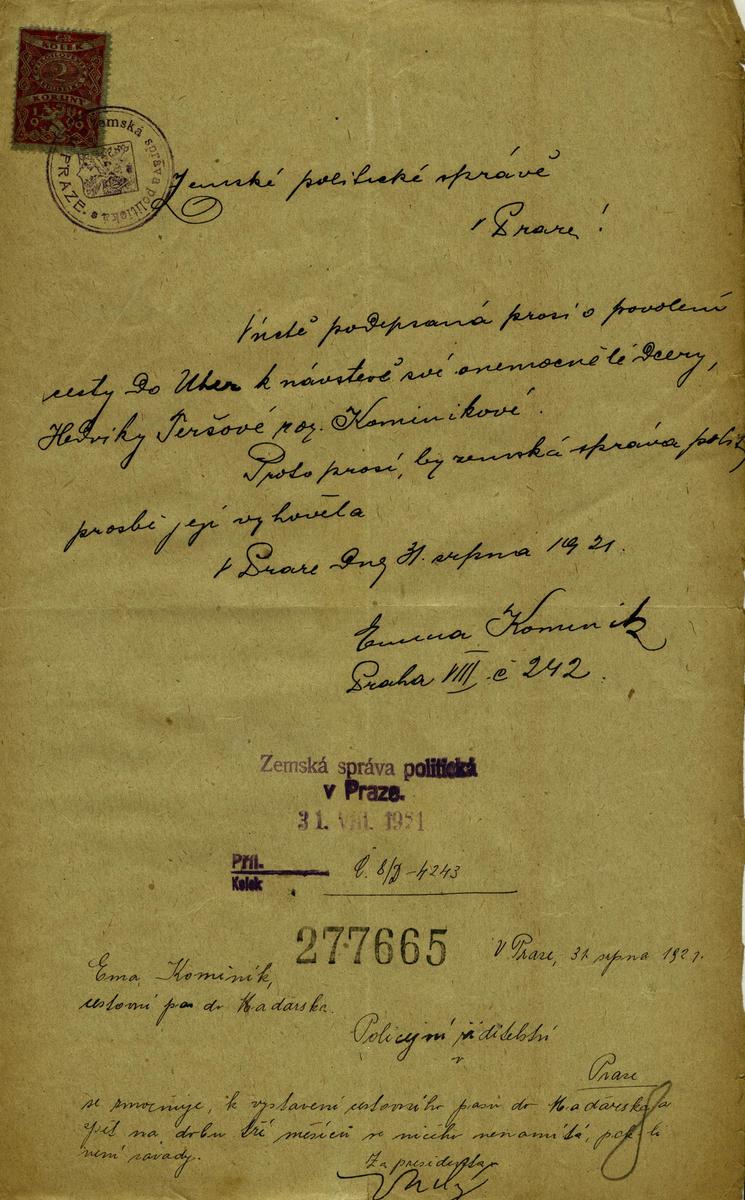 KOLEK
2
KORUNY
1919
Zemská správa politická
PRAZE.
Zemské politické správě
v Praze!
V úctě podepsaná prosí o povolení
cesty do Uher k návštevě své onemocnělé dcery,
Hedviky Teršové roz. Kominikové.
Proto prosí, by zemská správa polit.
prosbě její vyhověla
V Praze dne 31. srpna 1921.
Emma Kominik
Praha VIII č 242.
Zemská správa politická
v Praze.
31. VIII. 1921
Příl.
Kolek
Č. 8/D-4243
277665
V Praze, 31 srpna 1921.
Ema Kominik,
cestovní pas do Maďarska.
Policejní ředitelství
v
Praze
se zmocňuje, k vystavení cestovního pasu do Maďarska a
zpět na dobu tří měsíců se ničeho nenamítá, pokli
není závady.
Za presidenta: